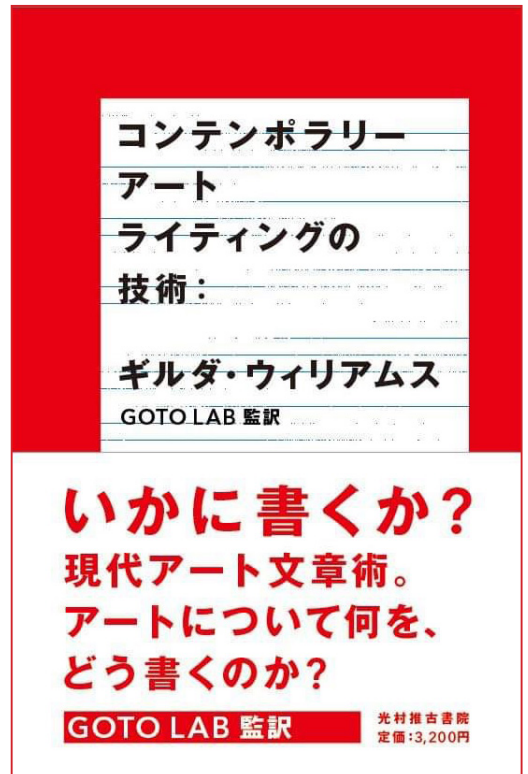 コンテンポラリー
アート
ライティングの
技術：
ギルダ・ウィリアムス
GOTO LAB 監訳
いかに書くか？
現代アート文章術。
アートについて何を、
どう書くのか？
GOTO LAB 監訳
光村推古書院
定価：3,200円